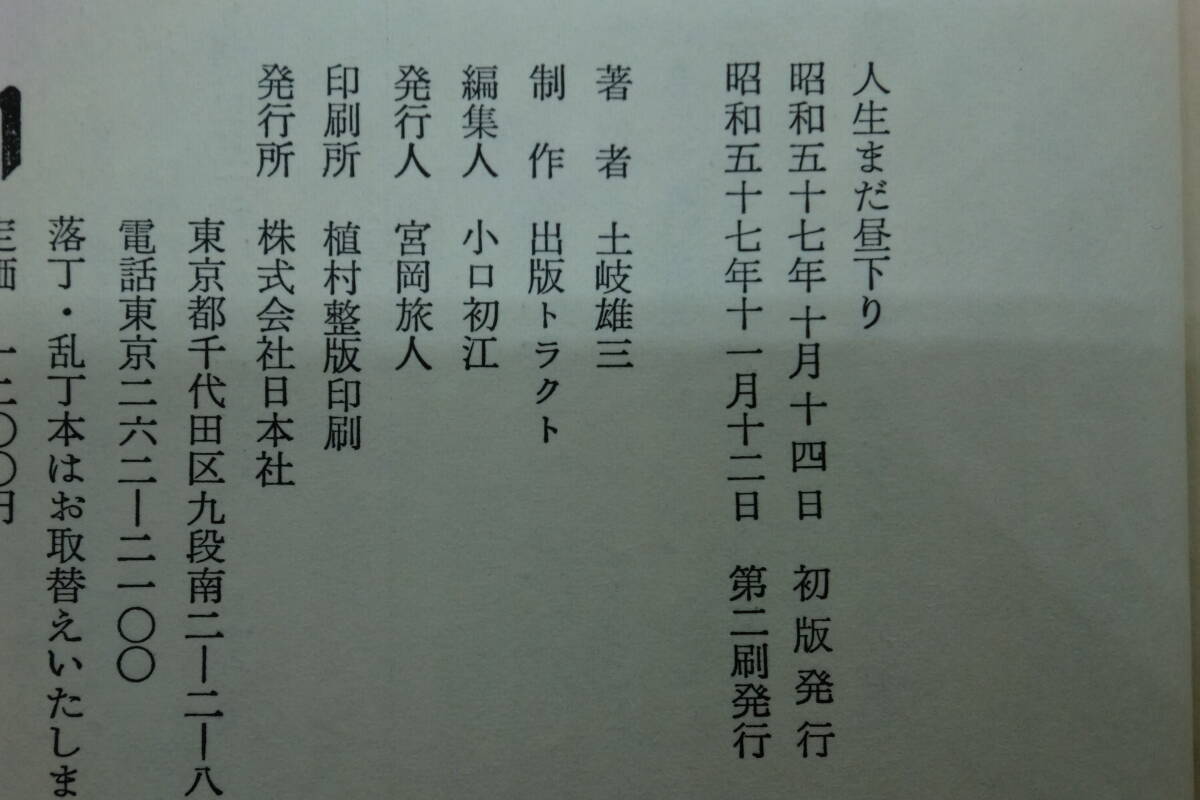 人生まだ昼下り
昭和五十七年十月十四日 初版発行
昭和五十七年十一月十二日 第二刷発行
著者 土岐雄三
制作 出版トラクト
編集人 小口初江
発行人 宮岡旅人
印刷所 植村整版印刷
発行所 株式会社日本社
東京都千代田区九段南二―二―八
電話東京二六二―二一〇〇
落丁・乱丁本はお取替えいたしま
定価 一二〇〇円